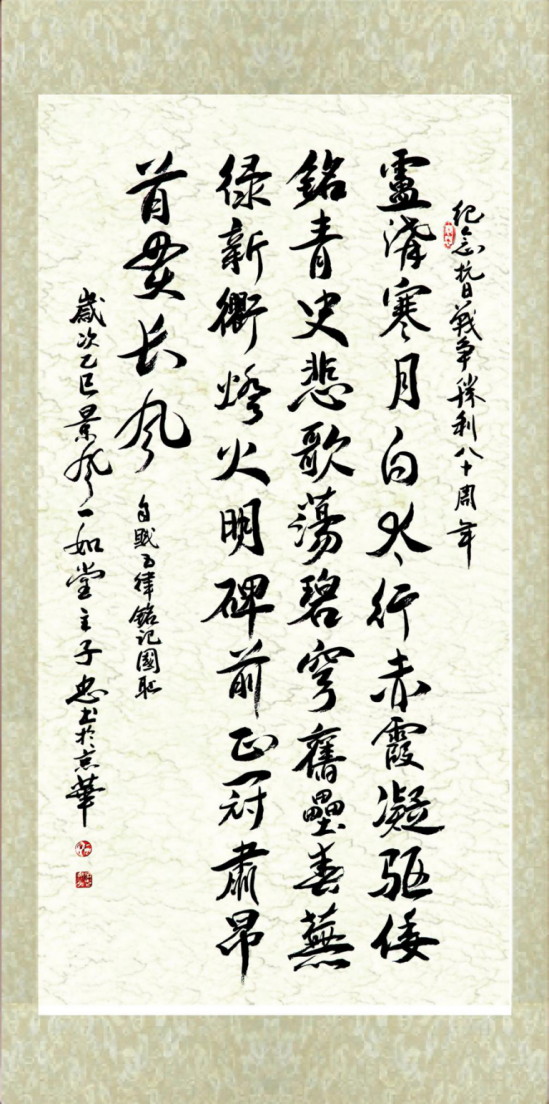 纪念抗日戰争勝利八十周年
盧溝寒月白太行赤霞凝驱倭
銘青史悲歌蕩碧穹舊壘春蕪
绿新衢燈火明碑前正冠肅昂
首贯长风
自賦五律銘记國耻
歲次乙巳景风一如堂主子忠书於京華